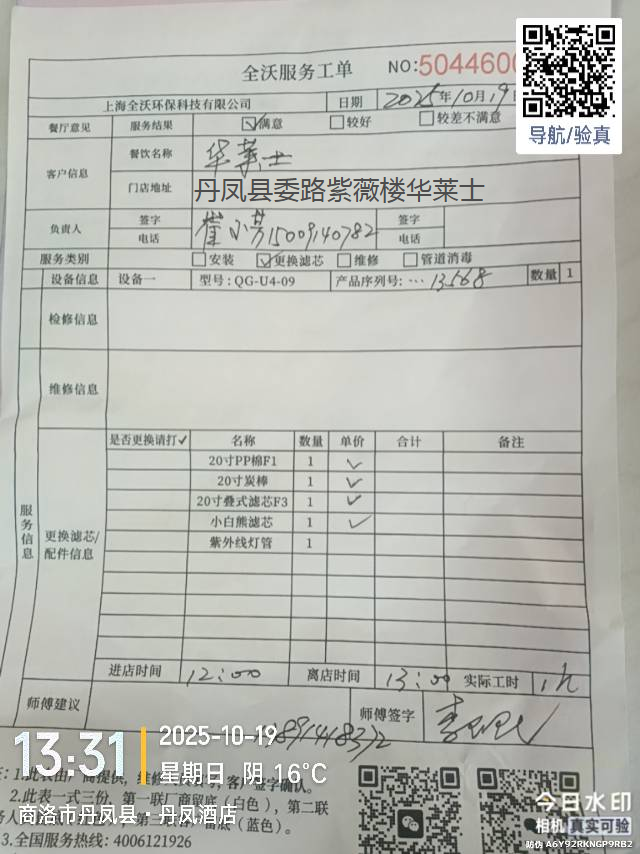 全沃服务工单 NO:5044600
导航/验真
上海全沃环保科技有限公司 日期 2025年10月19日
餐厅意见 服务结果 ☑满意 □较好 □较差不满意
客户信息 餐饮名称 华莱士
门店地址 丹凤县委路紫薇楼华莱士
负责人 签字 签字
电话 15009140782 电话
服务类别 □安装 ☑更换滤芯 □维修 □管道消毒
设备信息 设备一 型号:QG-U4-09 产品序列号:… 13568 数量 1
检修信息
维修信息
服务信息
更换滤芯/配件信息
是否更换请打✓ 名称 数量 单价 合计 备注
20寸PP棉F1 1 ✓
20寸炭棒 1 ✓
20寸叠式滤芯F3 1 ✓
小白熊滤芯 1 ✓
紫外线灯管 1
进店时间 12:00 离店时间 13:00 实际工时 1h
师傅建议 师傅签字
13:31 2025-10-19
星期日 阴 16°C
商洛市丹凤县·丹凤酒店
客户签字确认。
2.此表一式三份,第一联厂商留底(白色),第二联
(蓝色)。
3.全国服务热线:4006121926
今日水印
相机 真实可验
防伪 A6Y92RKNGP9RB2